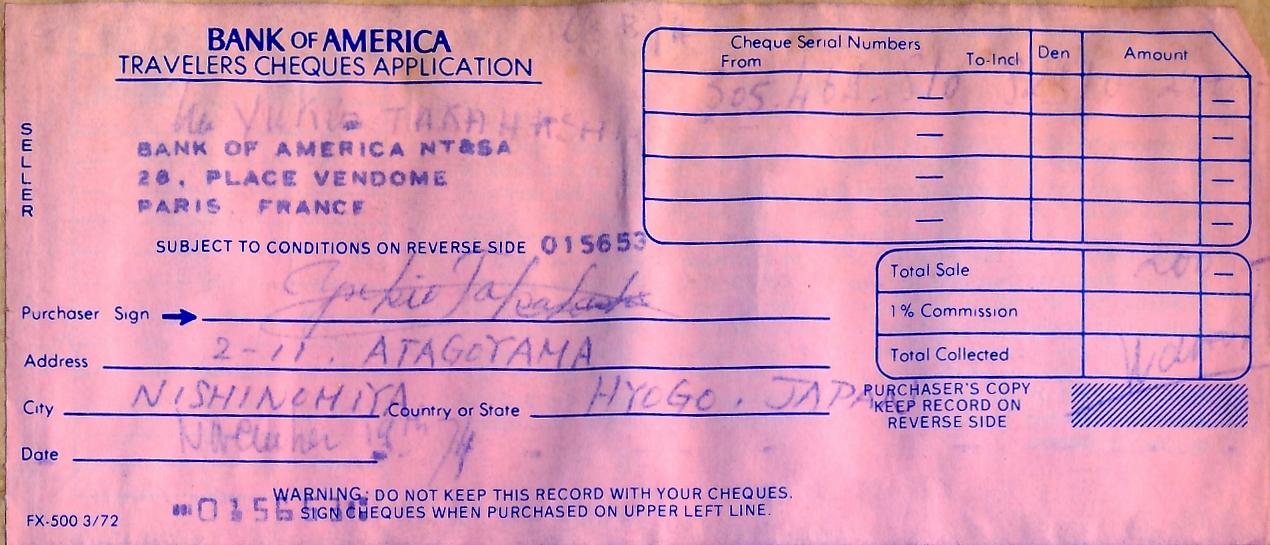 BANK OF AMERICA
TRAVELERS CHEQUES APPLICATION
Cheque Serial Numbers
From To-Incl Den Amount
YUKIE TAKAHASHI
SELLER
BANK OF AMERICA NT&SA
28, PLACE VENDOME
PARIS FRANCE
SUBJECT TO CONDITIONS ON REVERSE SIDE 015653
Total Sale
1% Commission
Total Collected
Purchaser Sign Yukie Takahashi
Address 2-11. ATAGOYAMA
City NISHINOMIYA Country or State HYOGO. JAPAN
PURCHASER'S COPY
KEEP RECORD ON
REVERSE SIDE
Date November 74
WARNING: DO NOT KEEP THIS RECORD WITH YOUR CHEQUES.
SIGN CHEQUES WHEN PURCHASED ON UPPER LEFT LINE.
FX-500 3/72